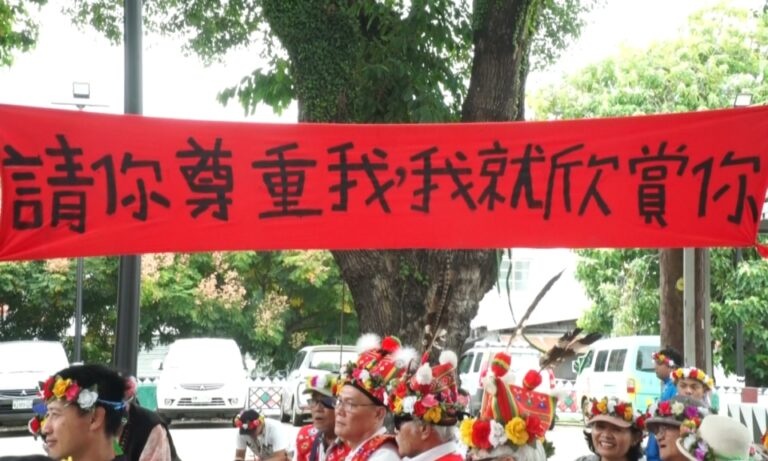 請你尊重我,我就欣賞你